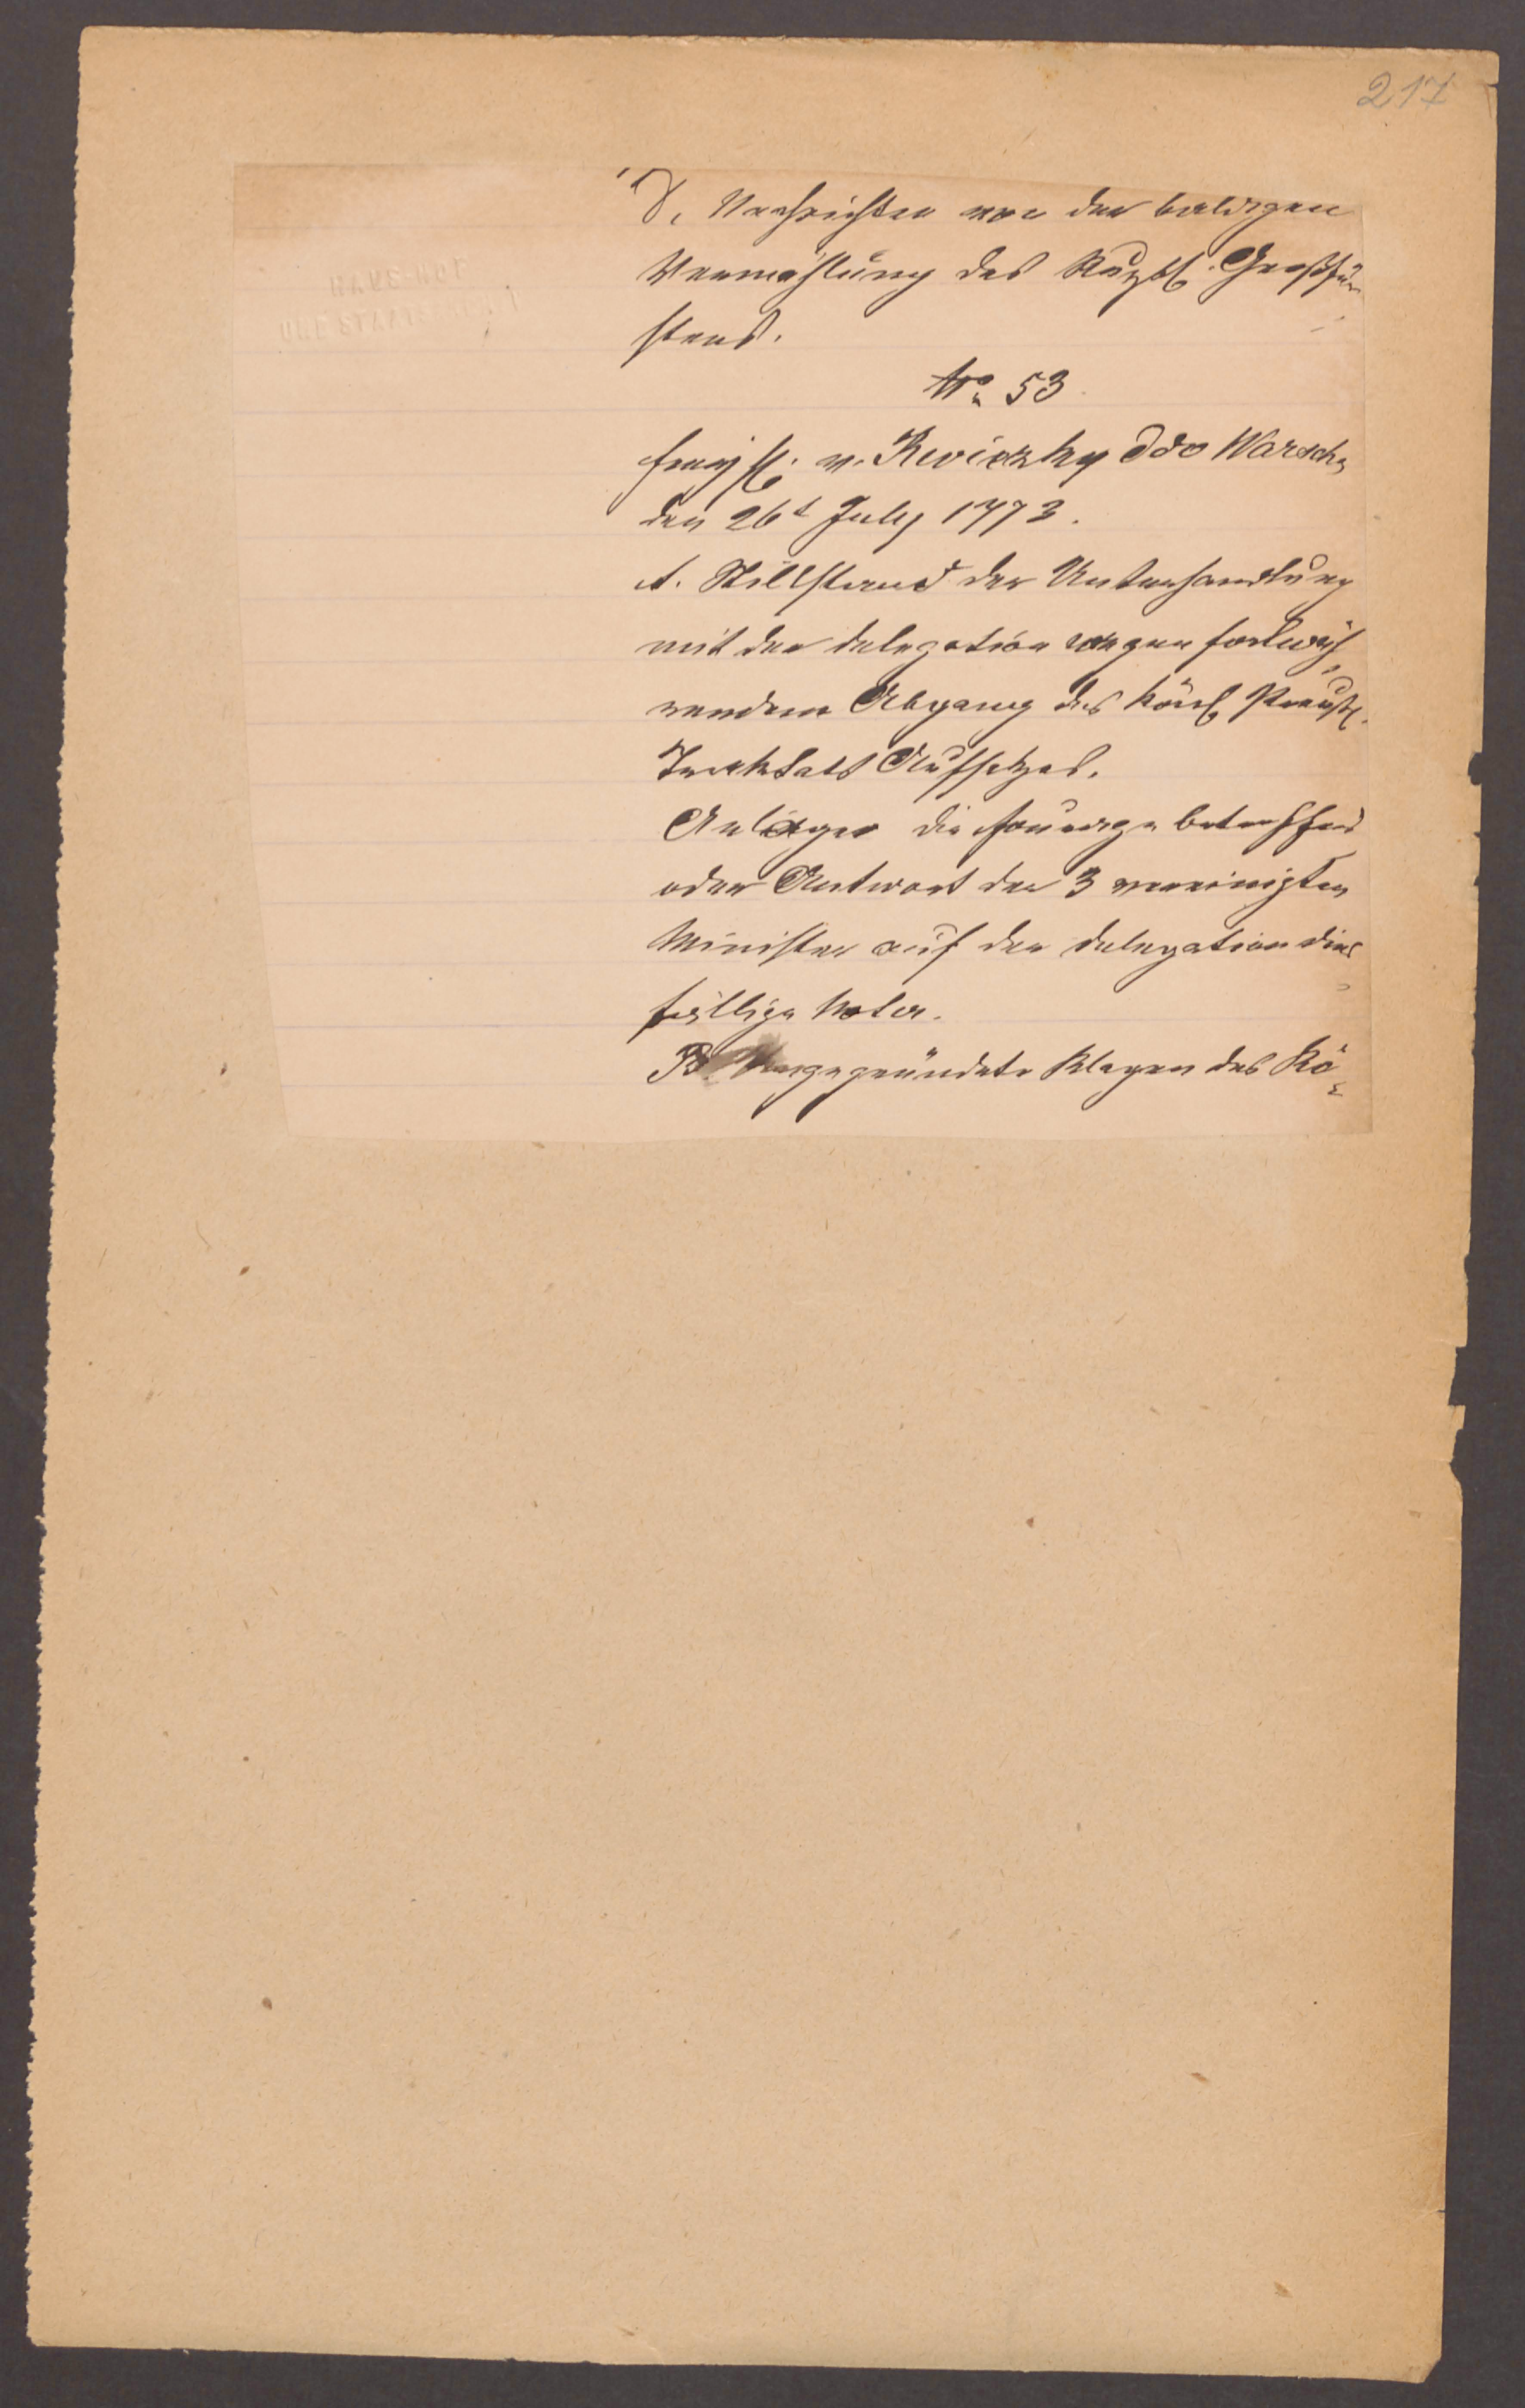 217
V. Nachrichten von der baldigen
Vermählung des Rußl. Großfür-
stens.
No. 53
Freyh. v. Reviczky ddo Warsch.
den 26t July 1773.
A. Stillstand der Unterhandlung
mit der Delegation wegen fortwäh-
rendem Abgang des Königl. Preuß.
Tracktats Aufsatzes.
Anlage die betreffend
oder Antwort der 3 vereinigten
Minister auf der Delegation dies-
fällige Noten.
B. Ungegründete Klagen des Kö-